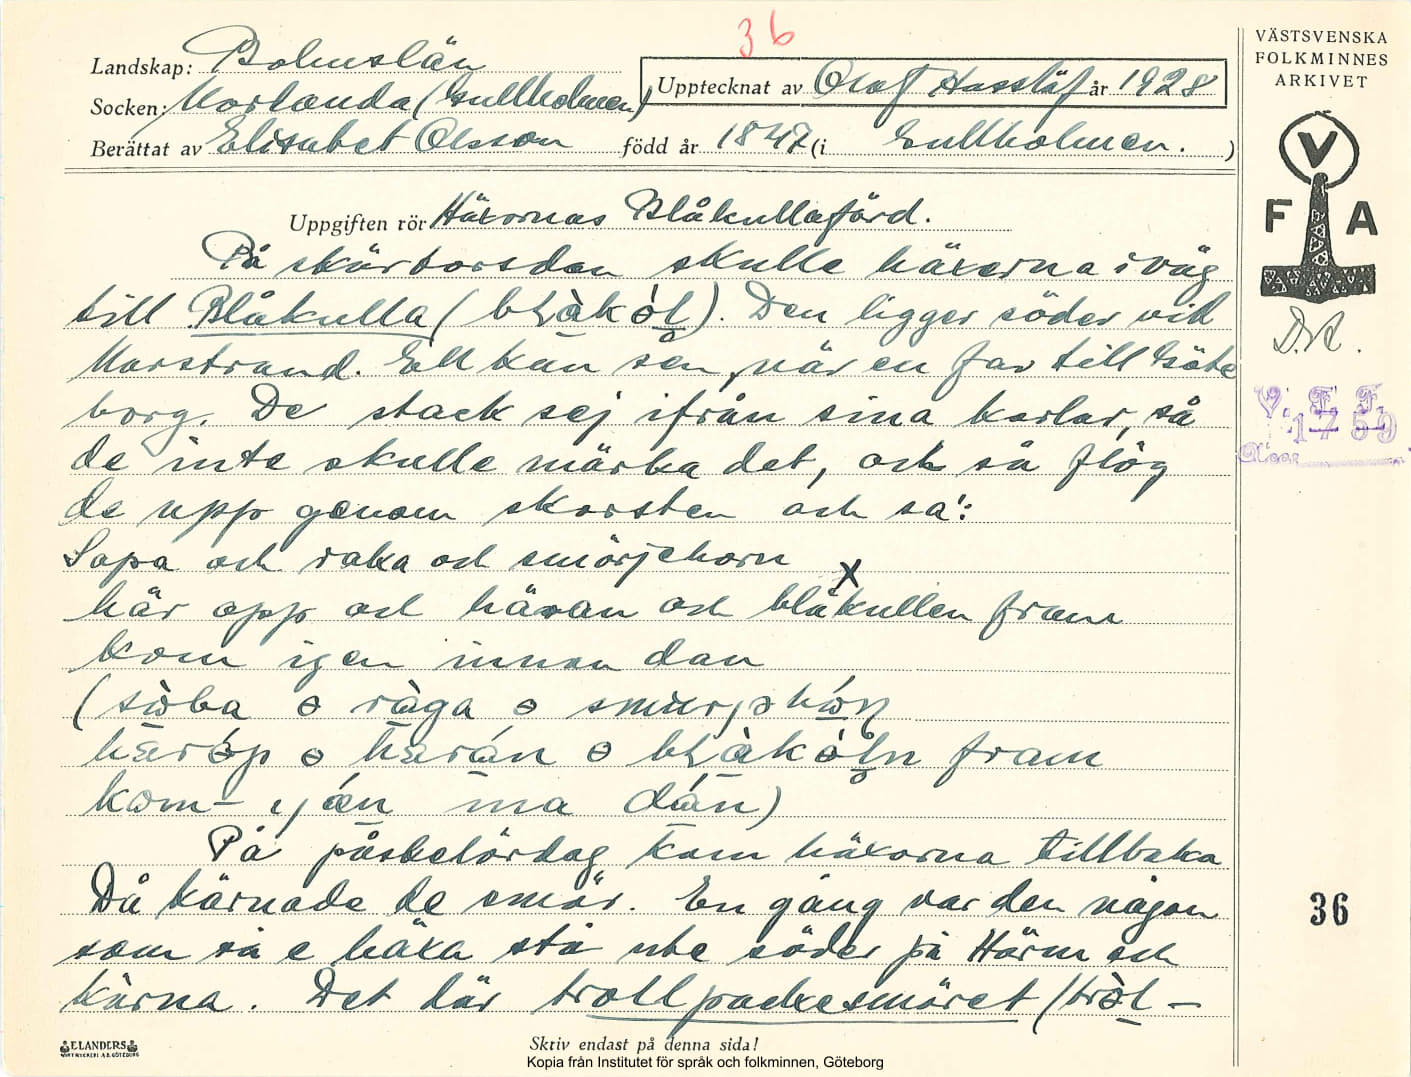 36
VÄSTSVENSKA
FOLKMINNES
ARKIVET
Landskap: Bohuslän
Upptecknat av Olof Hasslöf år 1928
Socken: Morlanda (Gullholmen)
Berättat av Elisabet Olsson född år 1847 (i Gullholmen.)
V
F A
Uppgiften rör Häxornas Blåkullafärd.
På skärtorsdan skulle häxerna iväg
till Blåkulla (). Den ligger söder vid
Marstrand. En kan sen, när en far till Göte
borg. De stack sej ifrån sina karlar, så
de inte skulle märka det, och så flög
de upp genom skorsten och sa':
Sopa och raka och smörjehorn
här opp och häran och blåkullen fram
kom igen innan dan
V. F. F.
1759
36
På påskelördag kom häxorna tillbaka
Då kärnade de smör. En gång var den någon
som så e häxa stå ute söder på Härm och
kärna. Det där trollpackesmöret
ELANDERS
Skriv endast på denna sida!
Kopia från Institutet för språk och folkminnen, Göteborg